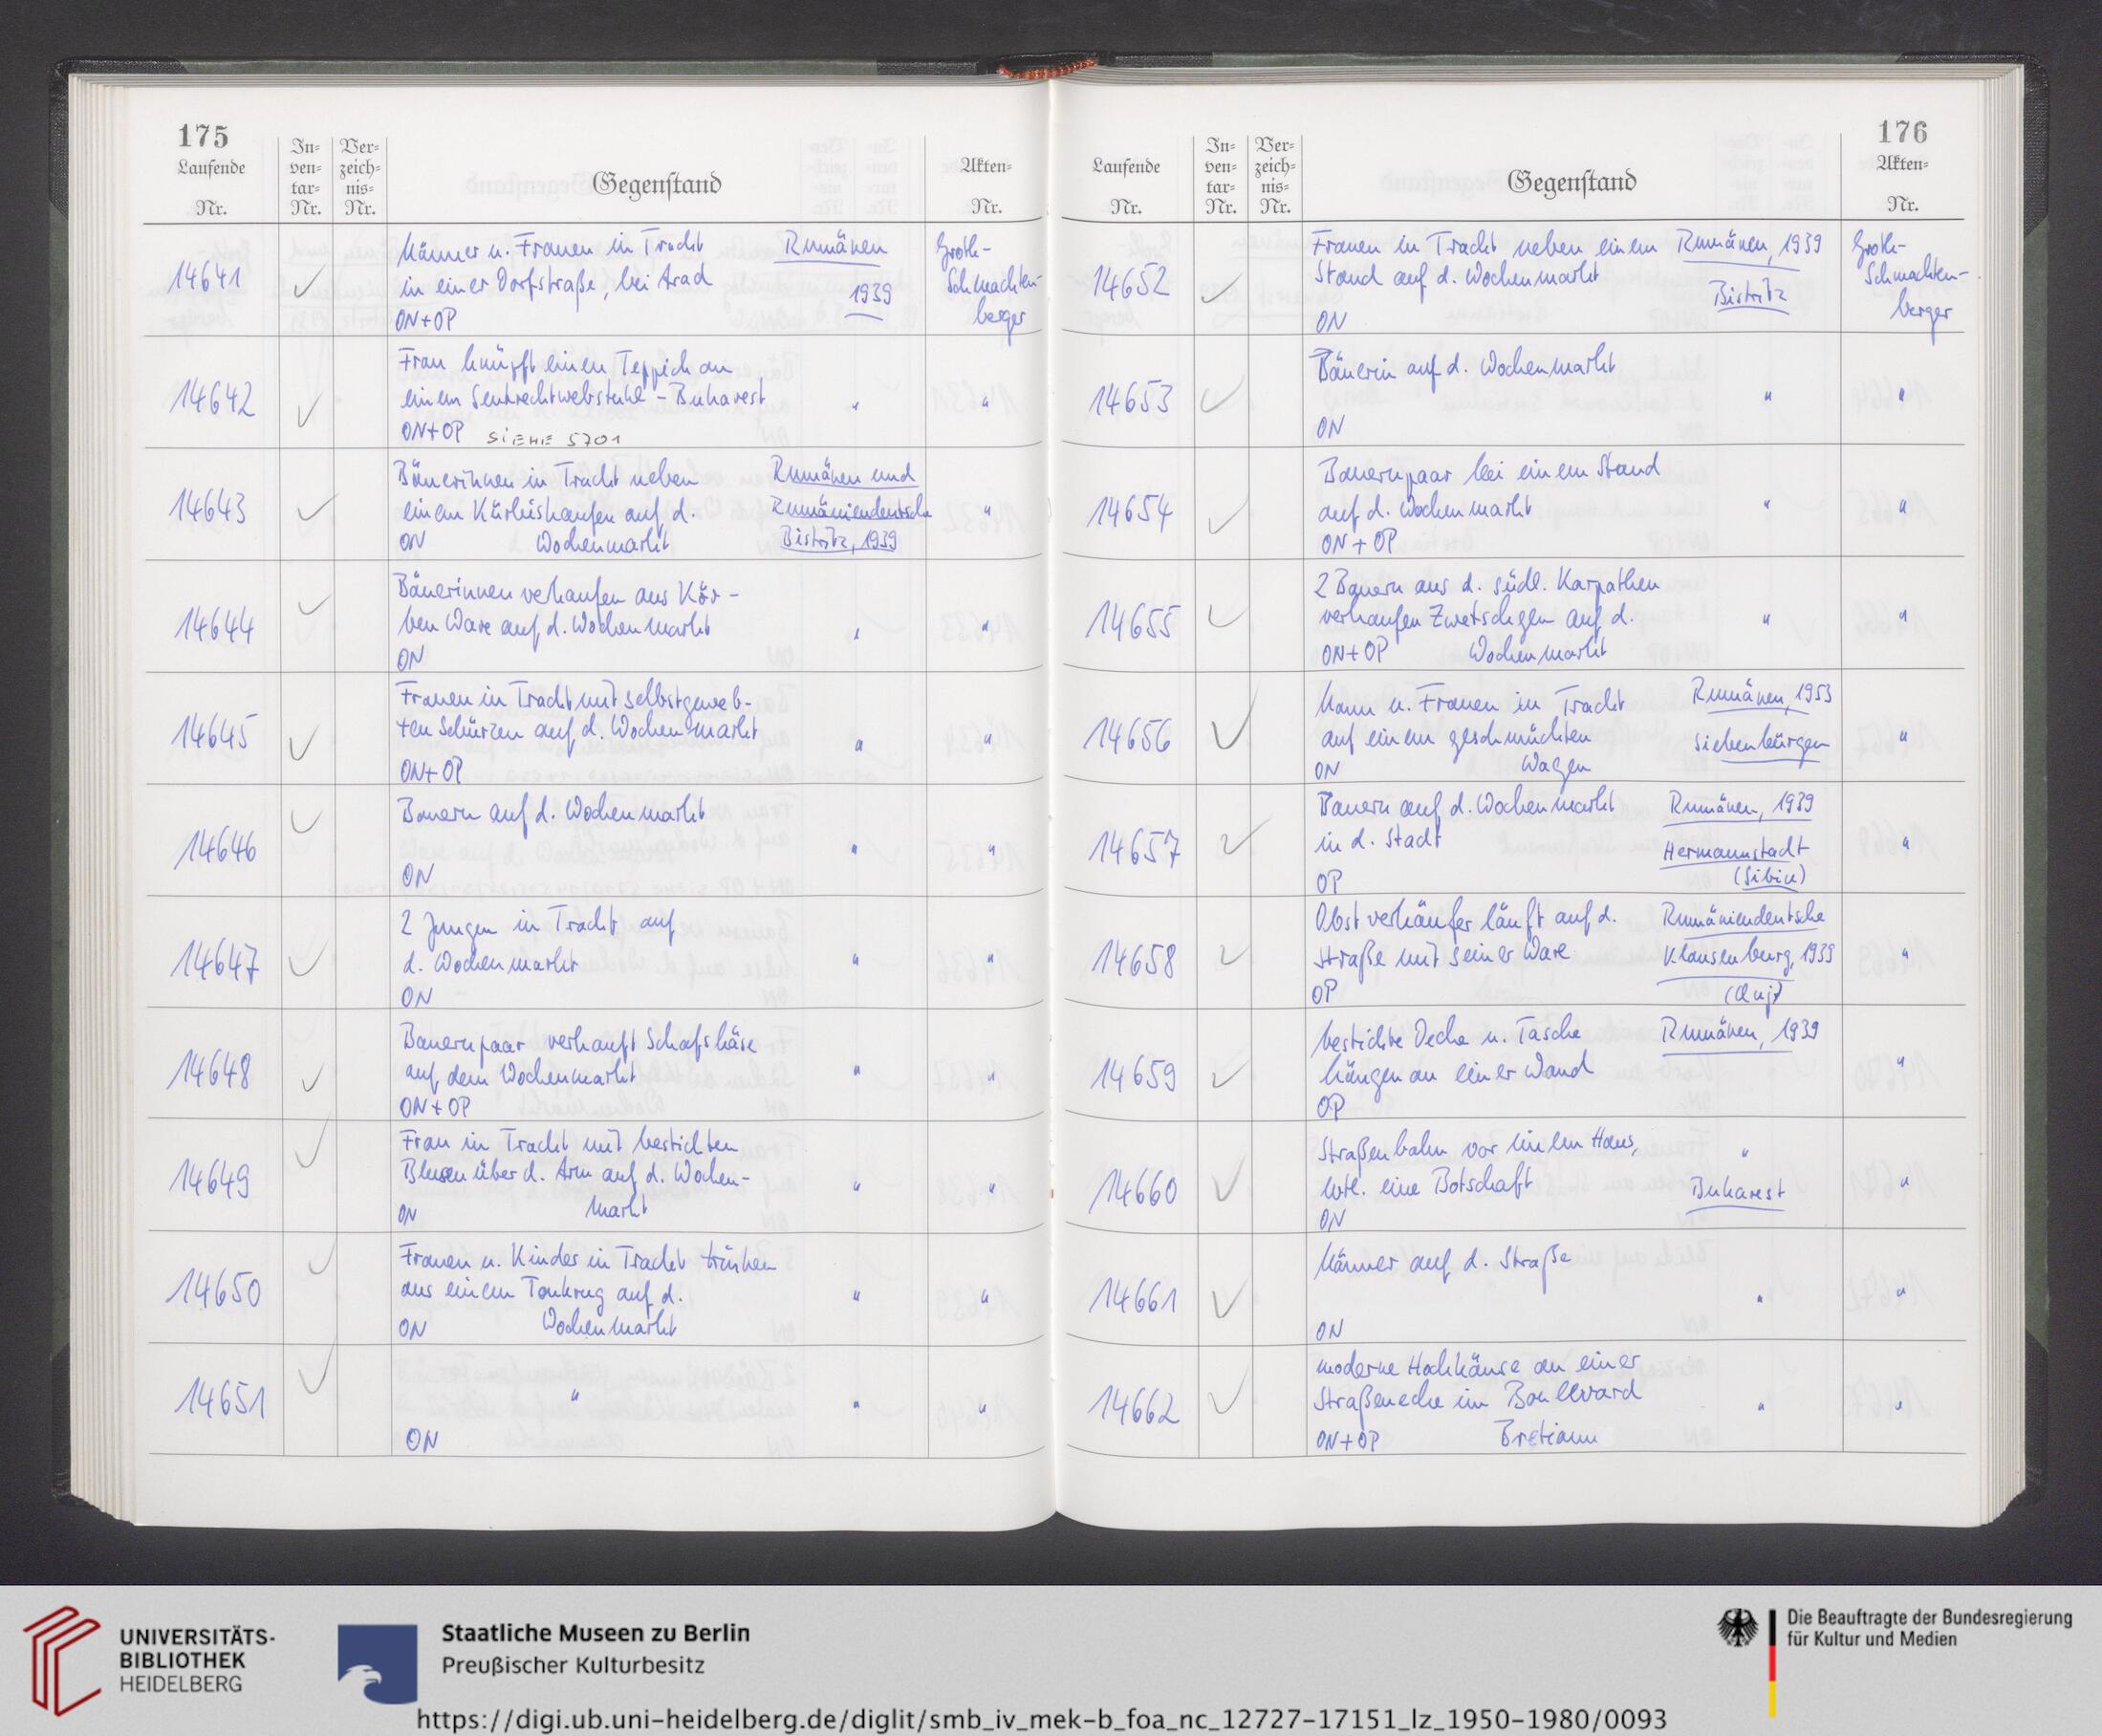 175
Laufende Nr.
In-ven-tar-Nr.
Ver-zeich-nis-Nr.
Gegenstand
Akten-Nr.
14641 ✓ Männer u. Frauen in Tracht Rumänen Groth-
in einer Dorfstraße, bei Arad 1939 Schmachten-
ON+OP berger
14642 ✓ Frau knüpft einen Teppich an
einem Senkrechtwebstuhl - Bukarest " "
ON+OP SIEHE 5701
14643 ✓ Bäuerinnen in Tracht neben Rumänen und
einem Kürbishaufen auf d. Rumäniendeutsche "
ON Wochenmarkt Bistritz, 1939
14644 ✓ Bäuerinnen verkaufen aus Kör-
ben Ware auf d. Wochenmarkt " "
ON
14645 ✓ Frauen in Tracht mit selbstgeweb-
ten Schürzen auf d. Wochenmarkt " "
ON+OP
14646 ✓ Bauern auf d. Wochenmarkt
" "
ON
14647 ✓ 2 Jungen in Tracht auf
d. Wochenmarkt " "
ON
14648 ✓ Bauernpaar verkauft Schafskäse
auf dem Wochenmarkt " "
ON+OP
14649 ✓ Frau in Tracht mit bestickten
Blusen über d. Arm auf d. Wochen-
ON markt " "
14650 ✓ Frauen u. Kinder in Tracht trinken
aus einem Tonkrug auf d. " "
ON Wochenmarkt
14651 ✓ " " "
ON
176
Laufende Nr.
In-ven-tar-Nr.
Ver-zeich-nis-Nr.
Gegenstand
Akten-Nr.
14652 ✓ Frauen in Tracht neben einem Rumänen, 1939 Groth-
Stand auf d. Wochenmarkt Bistritz Schmachten-
ON berger
14653 ✓ Bäuerin auf d. Wochenmarkt
" "
ON
14654 ✓ Bauernpaar bei einem Stand
auf d. Wochenmarkt " "
ON + OP
14655 ✓ 2 Bauern aus d. südl. Karpathen
verkaufen Zwetschgen auf d. " "
ON+OP Wochenmarkt
14656 ✓ Mann u. Frauen in Tracht Rumänen, 1953
auf einem geschmückten Siebenbürgen "
ON Wagen
14657 ✓ Bauern auf d. Wochenmarkt Rumänen, 1939
in d. Stadt Hermannstadt "
OP (Sibiu)
14658 ✓ Obstverkäufer läuft auf d. Rumäniendeutsche
Straße mit seiner Ware Klausenburg, 1939 "
OP (Cluj)
14659 ✓ bestickte Decke u. Tasche Rumänen, 1939
hängen an einer Wand "
OP
14660 ✓ Straßenbahn vor einem Haus, "
wtl. eine Botschaft Bukarest "
ON
14661 ✓ Männer auf d. Straße
" "
ON
14662 ✓ moderne Hochhäuse an einer
Straßenecke im Boulevard " "
ON+OP Bretianu
UNIVERSITÄTS-
BIBLIOTHEK
HEIDELBERG
Staatliche Museen zu Berlin
Preußischer Kulturbesitz
Die Beauftragte der Bundesregierung
für Kultur und Medien
https://digi.ub.uni-heidelberg.de/diglit/smb_iv_mek-b_foa_nc_12727-17151_lz_1950-1980/0093